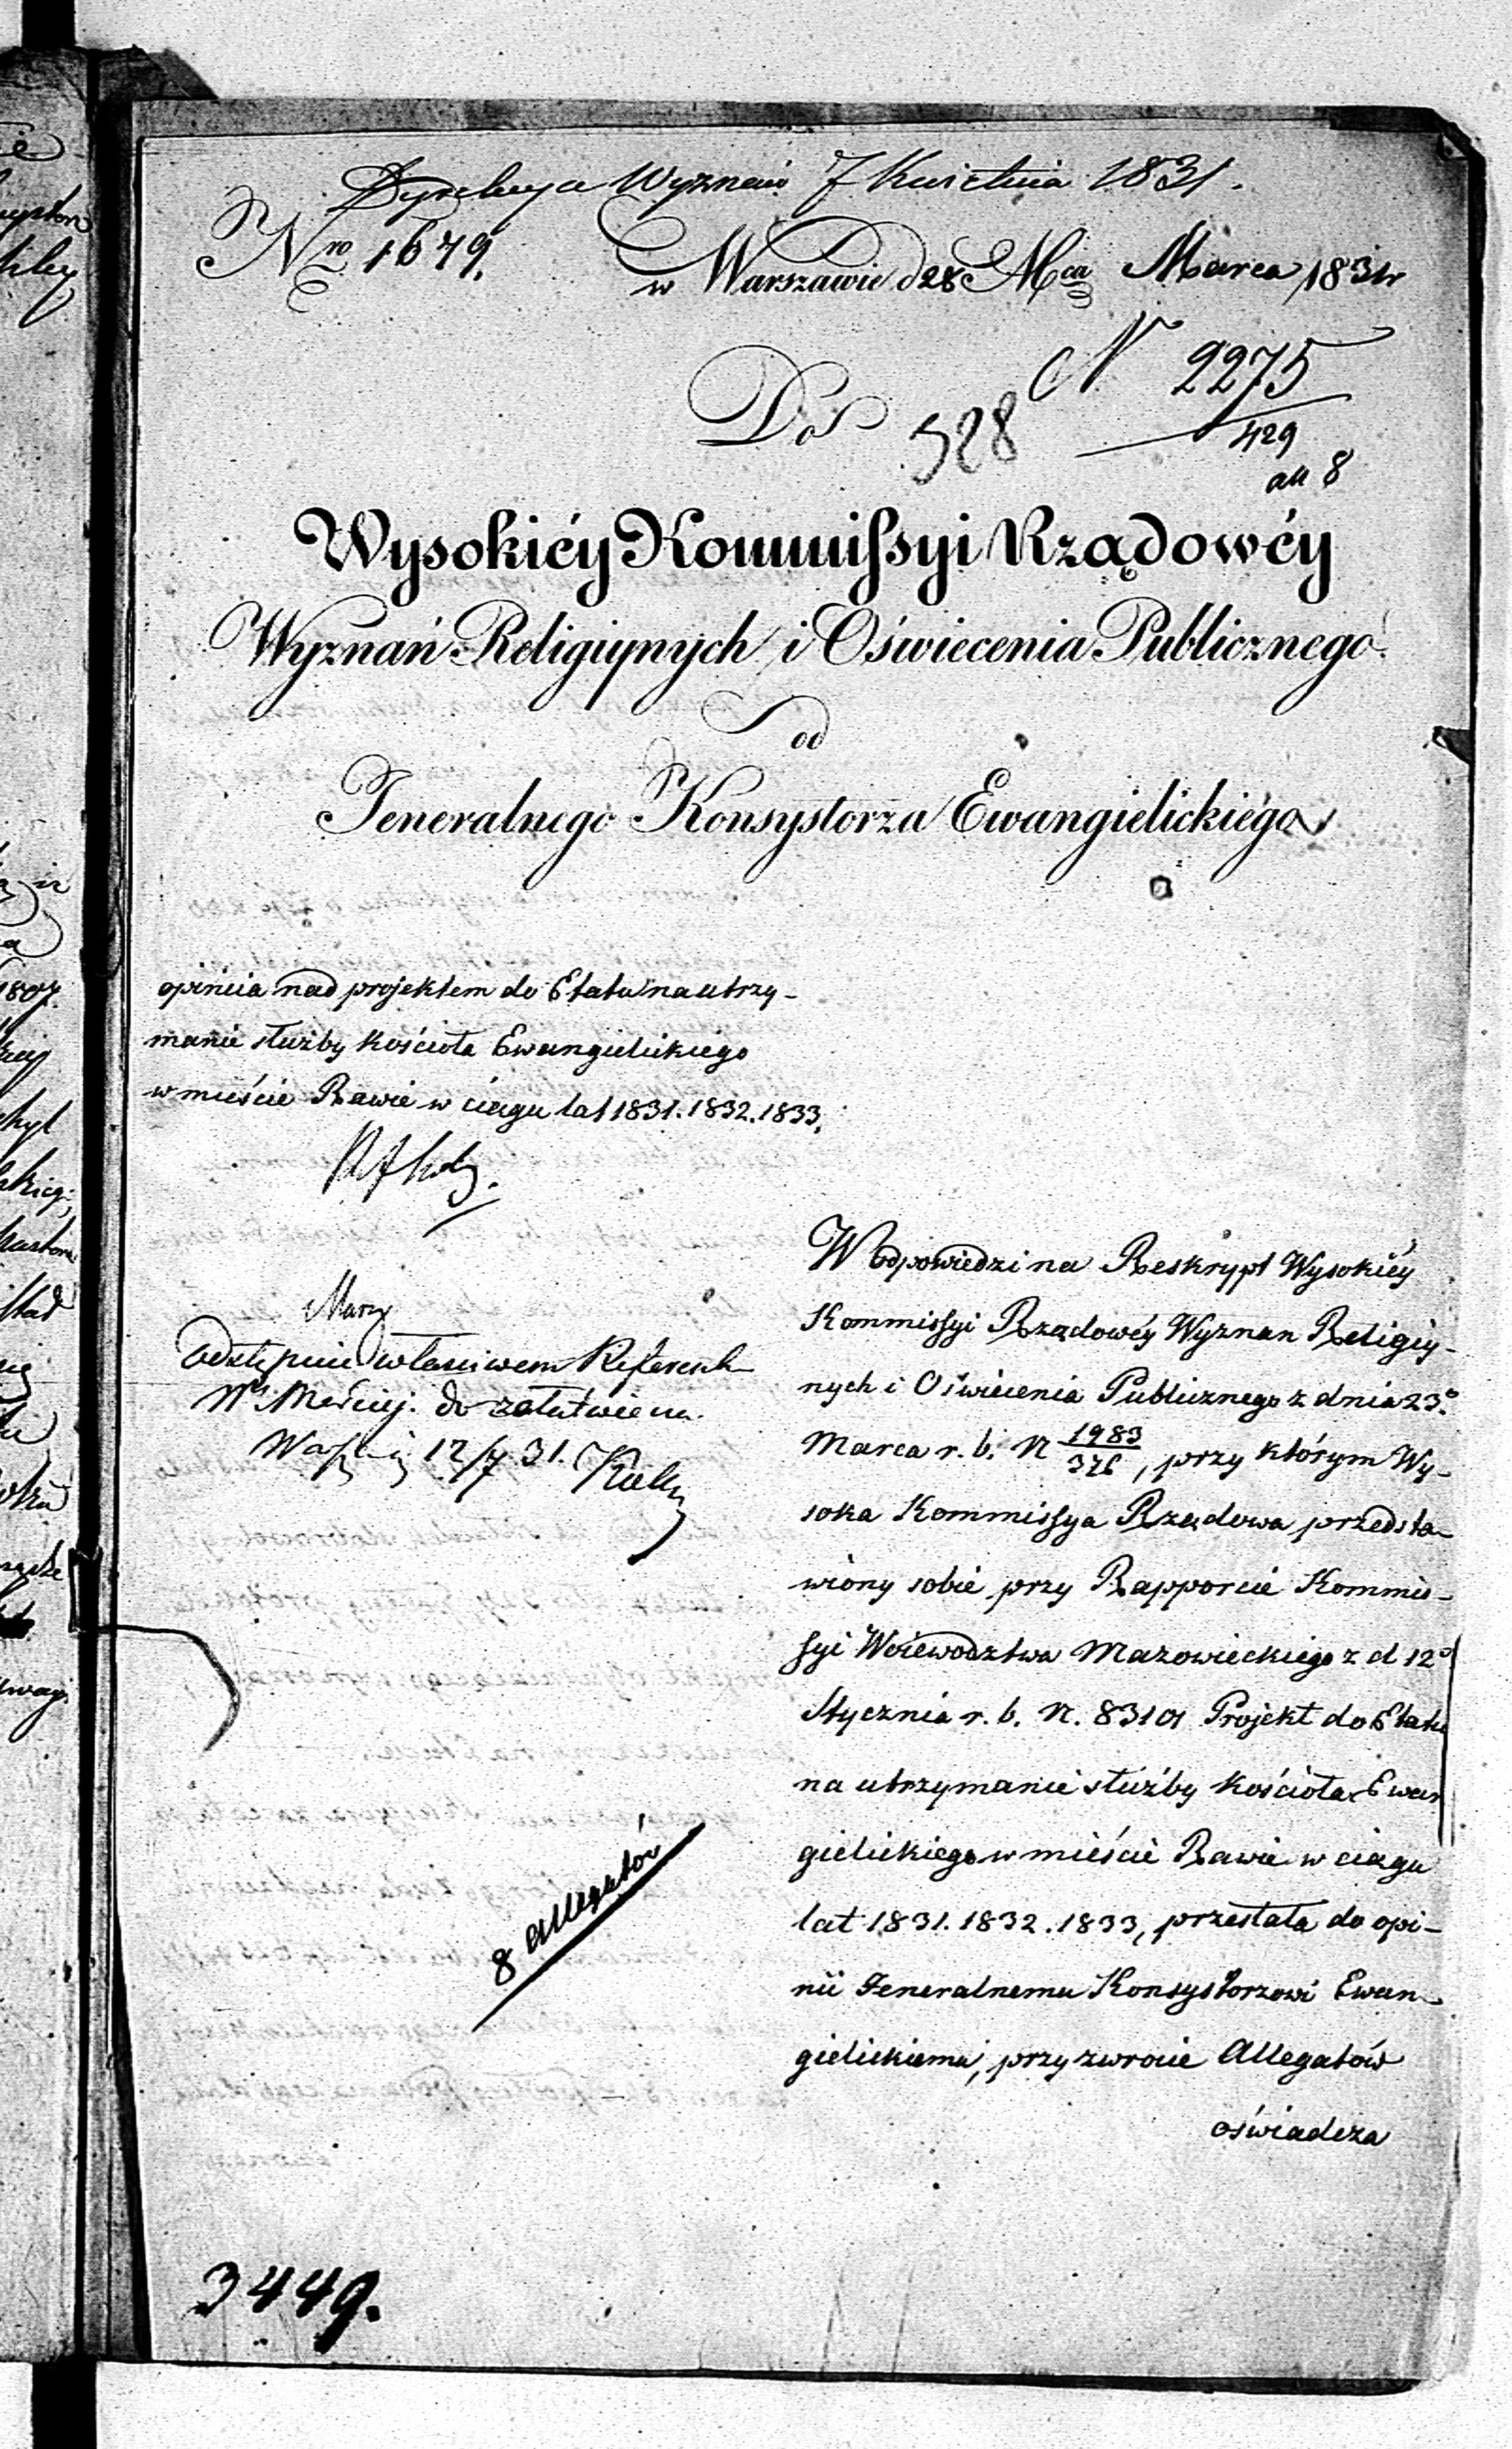 Dyrekcya Wyznań 7 Kwietnia 1831.
Nro 1679.
w Warszawie d 28 Mca Marca 1831r
N 2275
429
all 8
Do
528
Wysokiéy Kommissyi Rządowéy
Wyznań Religiynych i Oświecenia Publicznego.
od
Jeneralnego Konsystorza Ewangielickiégo
opiniia nad projektem do Etatu na utrzy-
manie służby kościoła Ewangielickiego
w mieście Rawie w ciągu lat 1831. 1832. 1833.
Odstępuie właściwem
do załatwienia
12/7 31.
W odpowiedzi na Reskrypt Wysokiéy
Kommissyi Rządowéy Wyznan Religiy-
nych i Oświecenia Publicznego z dnia 23o
Marca r. b. N 1983/376, przy którym Wy-
soka Kommissya Rządowa przedsta-
wiony sobie przy Rapporcie Kommis-
syi Woiewodztwa Mazowieckiego z d 12o
Stycznia r. b. N. 83101 Projekt do Etatu
na utrzymanie służby kościoła Ewan
gielickiego w mieście Rawie w ciągu
lat 1831. 1832. 1833, przesłała do opi-
nii Jeneralnemu Konsystorzowi Ewan-
gielickiemu, przy zwrocie Allegatów
oświadcza
8 Allegatów
3449.